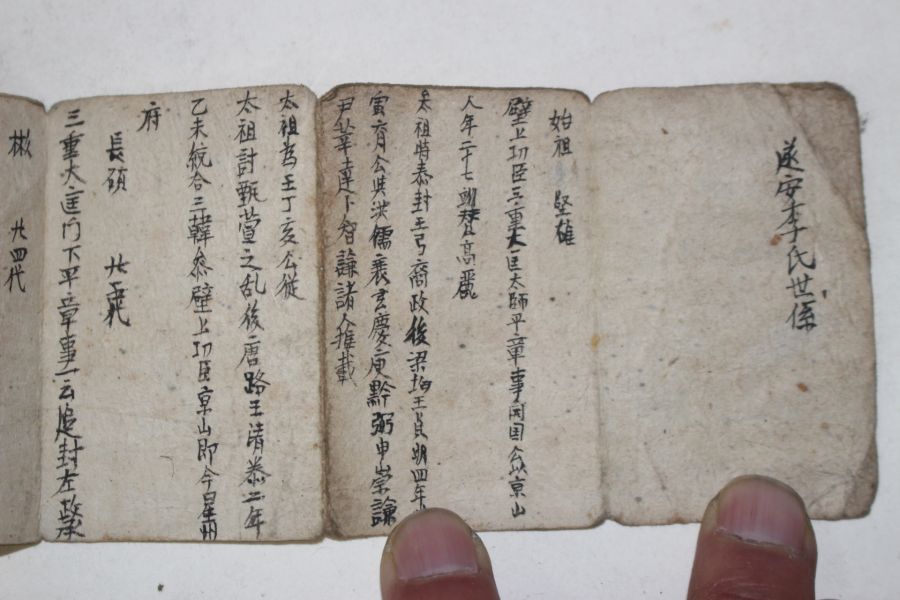 遂安李氏世係
始祖 堅雄
壁上功臣三重大匡太師平章事開国公京山
人年二十七朝替高麗
太祖時泰封王弓裔政後梁均王貞明四年
寅育公與洪儒裵玄慶庾黔弼申崇謙
尹莘達卜智謙諸人推載
太祖為王丁亥公從
太祖討甄萱之乱後唐路王清泰二年
乙未統合三韓叅壁上功臣京山即今星州
府
長碩 廿五代
三重大匡門下平章事一云追封左政丞
彬 廿四代